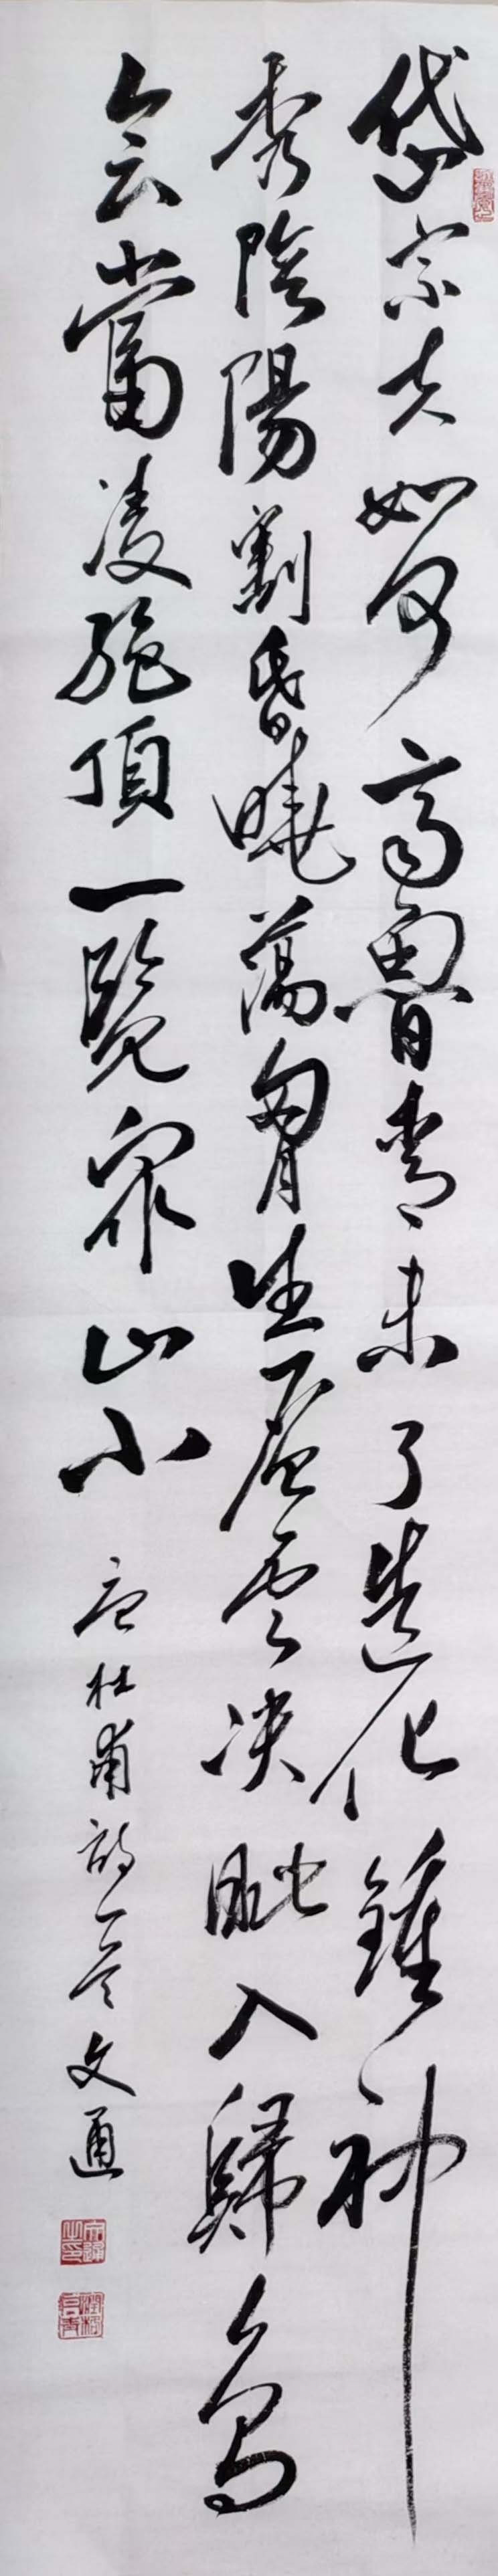 岱宗夫如何齊魯青未了造化鍾神
秀陰陽割昏曉蕩胷生層雲决眦入歸鳥
会當凌絕頂一覽眾山小 唐杜甫詩一首 文通